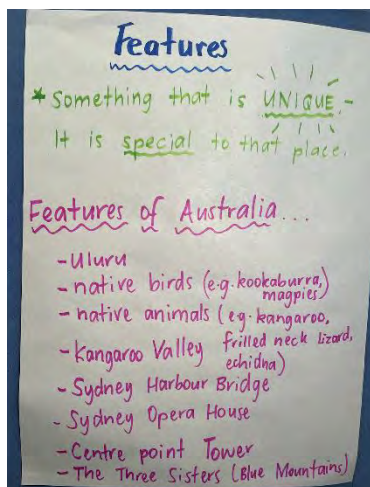 Features
* Something that is UNIQUE.-
It is special to that place.
Features of Australia...
- Uluru
- native birds (e.g. kookaburra, magpies)
- native animals (eg. kangaroo, frilled neck lizard, echidna)
- Kangaroo Valley
- Sydney Harbour Bridge
- Sydney Opera House
- Centre point Tower
- The Three Sisters (Blue Mountains)